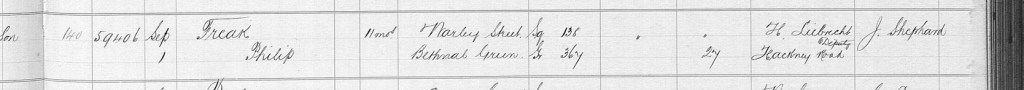 140 59406 Sep Freak 11 mos Warley Street Sq 138 " " H. Liebrecht J. Shephard
1 Philip Bethnal Green Gr 367 27 Deputy Hackney Road